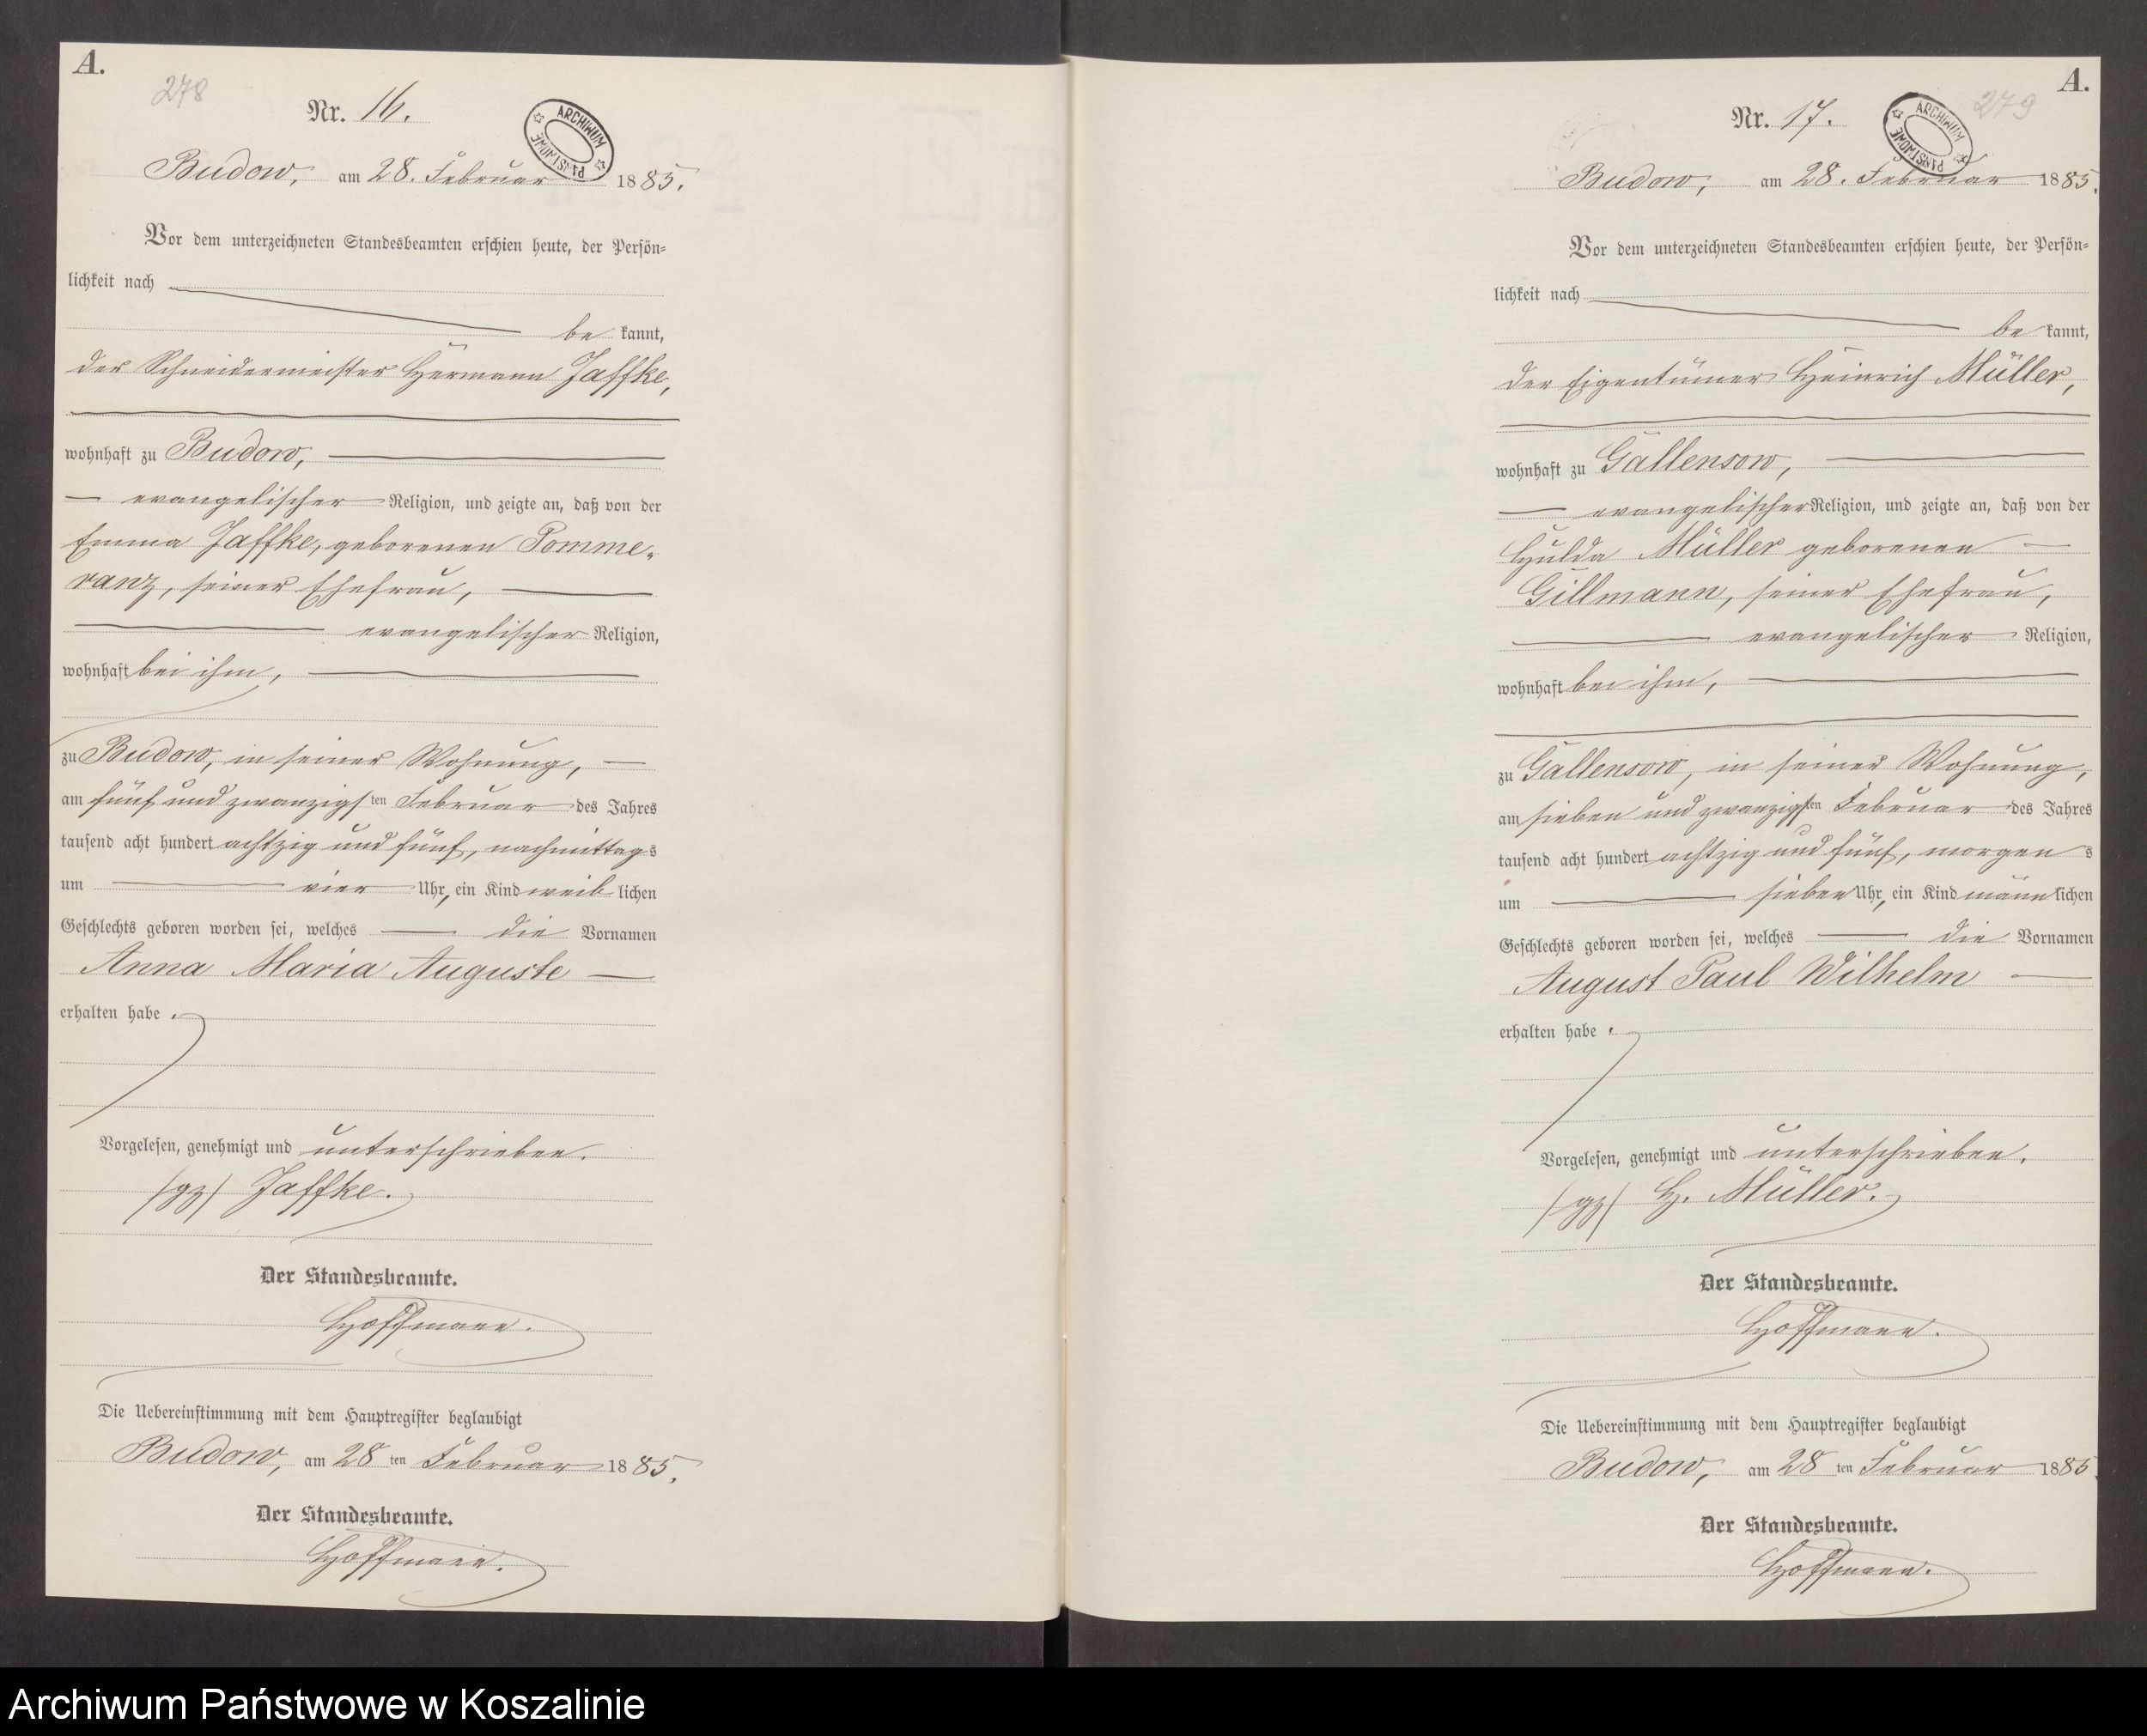 A.
278
Nr. 16.
ARCHIWUM PAŃSTWOWE
Budow, am 28. Februar 1885.
Vor dem unterzeichneten Standesbeamten erschien heute, der Persön-
lichkeit nach
be kannt,
der Schneidermeister Hermann Jaffke,
wohnhaft zu Budow,
evangelischer Religion, und zeigte an, daß von der
Emma Jaffke, geborenen Pomme-
ranz, seiner Ehefrau,
evangelischer Religion,
wohnhaft bei ihm,
zu Budow, in seiner Wohnung,
am fünf und zwanzigsten Februar des Jahres
tausend acht hundert achtzig und fünf, nachmittags
um vier Uhr, ein Kind weiblichen
Geschlechts geboren worden sei, welches die Vornamen
Anna Maria Auguste
erhalten habe.
Vorgelesen, genehmigt und unterschrieben.
/gz/ Jaffke.
Der Standesbeamte.
Hoffmann.
Die Uebereinstimmung mit dem Hauptregister beglaubigt
Budow, am 28 ten Februar 1885.
Der Standesbeamte.
Hoffmann.
A.
279
Nr. 17.
ARCHIWUM PAŃSTWOWE
Budow, am 28. Februar 1885.
Vor dem unterzeichneten Standesbeamten erschien heute, der Persön-
lichkeit nach
be kannt,
der Eigentümer Heinrich Müller,
wohnhaft zu Gallensow,
evangelischer Religion, und zeigte an, daß von der
Hulda Müller geborenen
Gillmann, seiner Ehefrau,
evangelischer Religion,
wohnhaft bei ihm,
zu Gallensow, in seiner Wohnung,
am sieben und zwanzigsten Februar des Jahres
tausend acht hundert achtzig und fünf, morgens
um sieben Uhr, ein Kind männlichen
Geschlechts geboren worden sei, welches die Vornamen
August Paul Wilhelm
erhalten habe.
Vorgelesen, genehmigt und unterschrieben.
/gz/ H. Müller.
Der Standesbeamte.
Hoffmann.
Die Uebereinstimmung mit dem Hauptregister beglaubigt
Budow, am 28 ten Februar 1885
Der Standesbeamte.
Hoffmann.
Archiwum Państwowe w Koszalinie